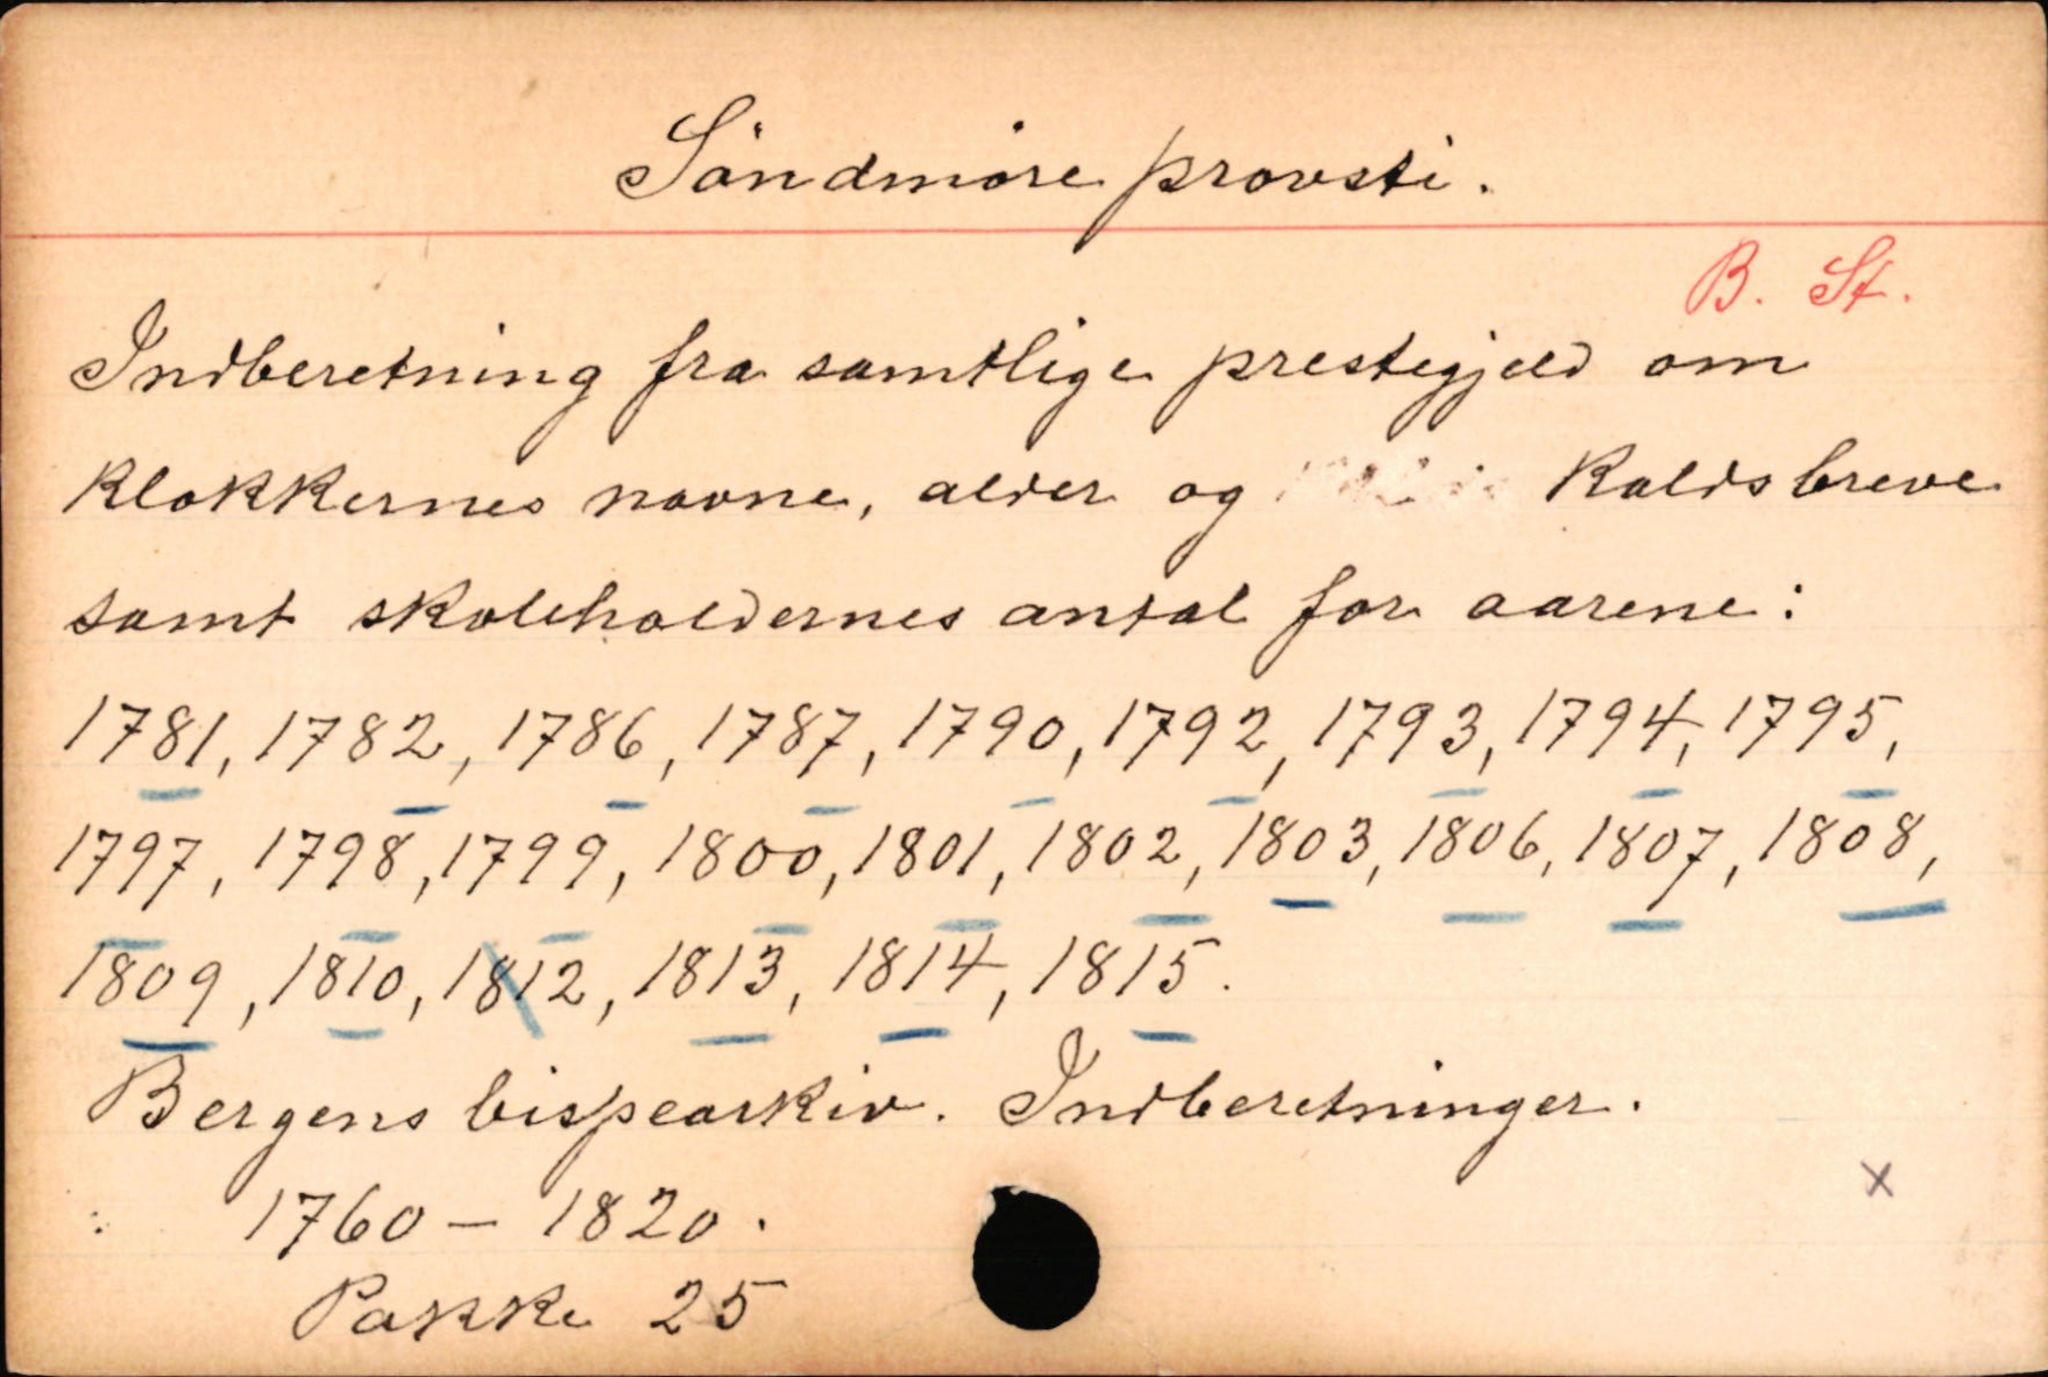 Söndmöre provsti.
B. St.
Indberetning fra samtlige prestegjeld om
klokkernes navne, alder og kaldsbreve
samt skoleholdernes antal for aarene:
1781, 1782, 1786, 1787, 1790, 1792, 1793, 1794, 1795,
1797, 1798, 1799, 1800, 1801, 1802, 1803, 1806, 1807, 1808,
1809, 1810, 1812, 1813, 1814, 1815.
Bergens bispearkiv. Indberetninger.
x
1760 – 1820.
Pakke 25